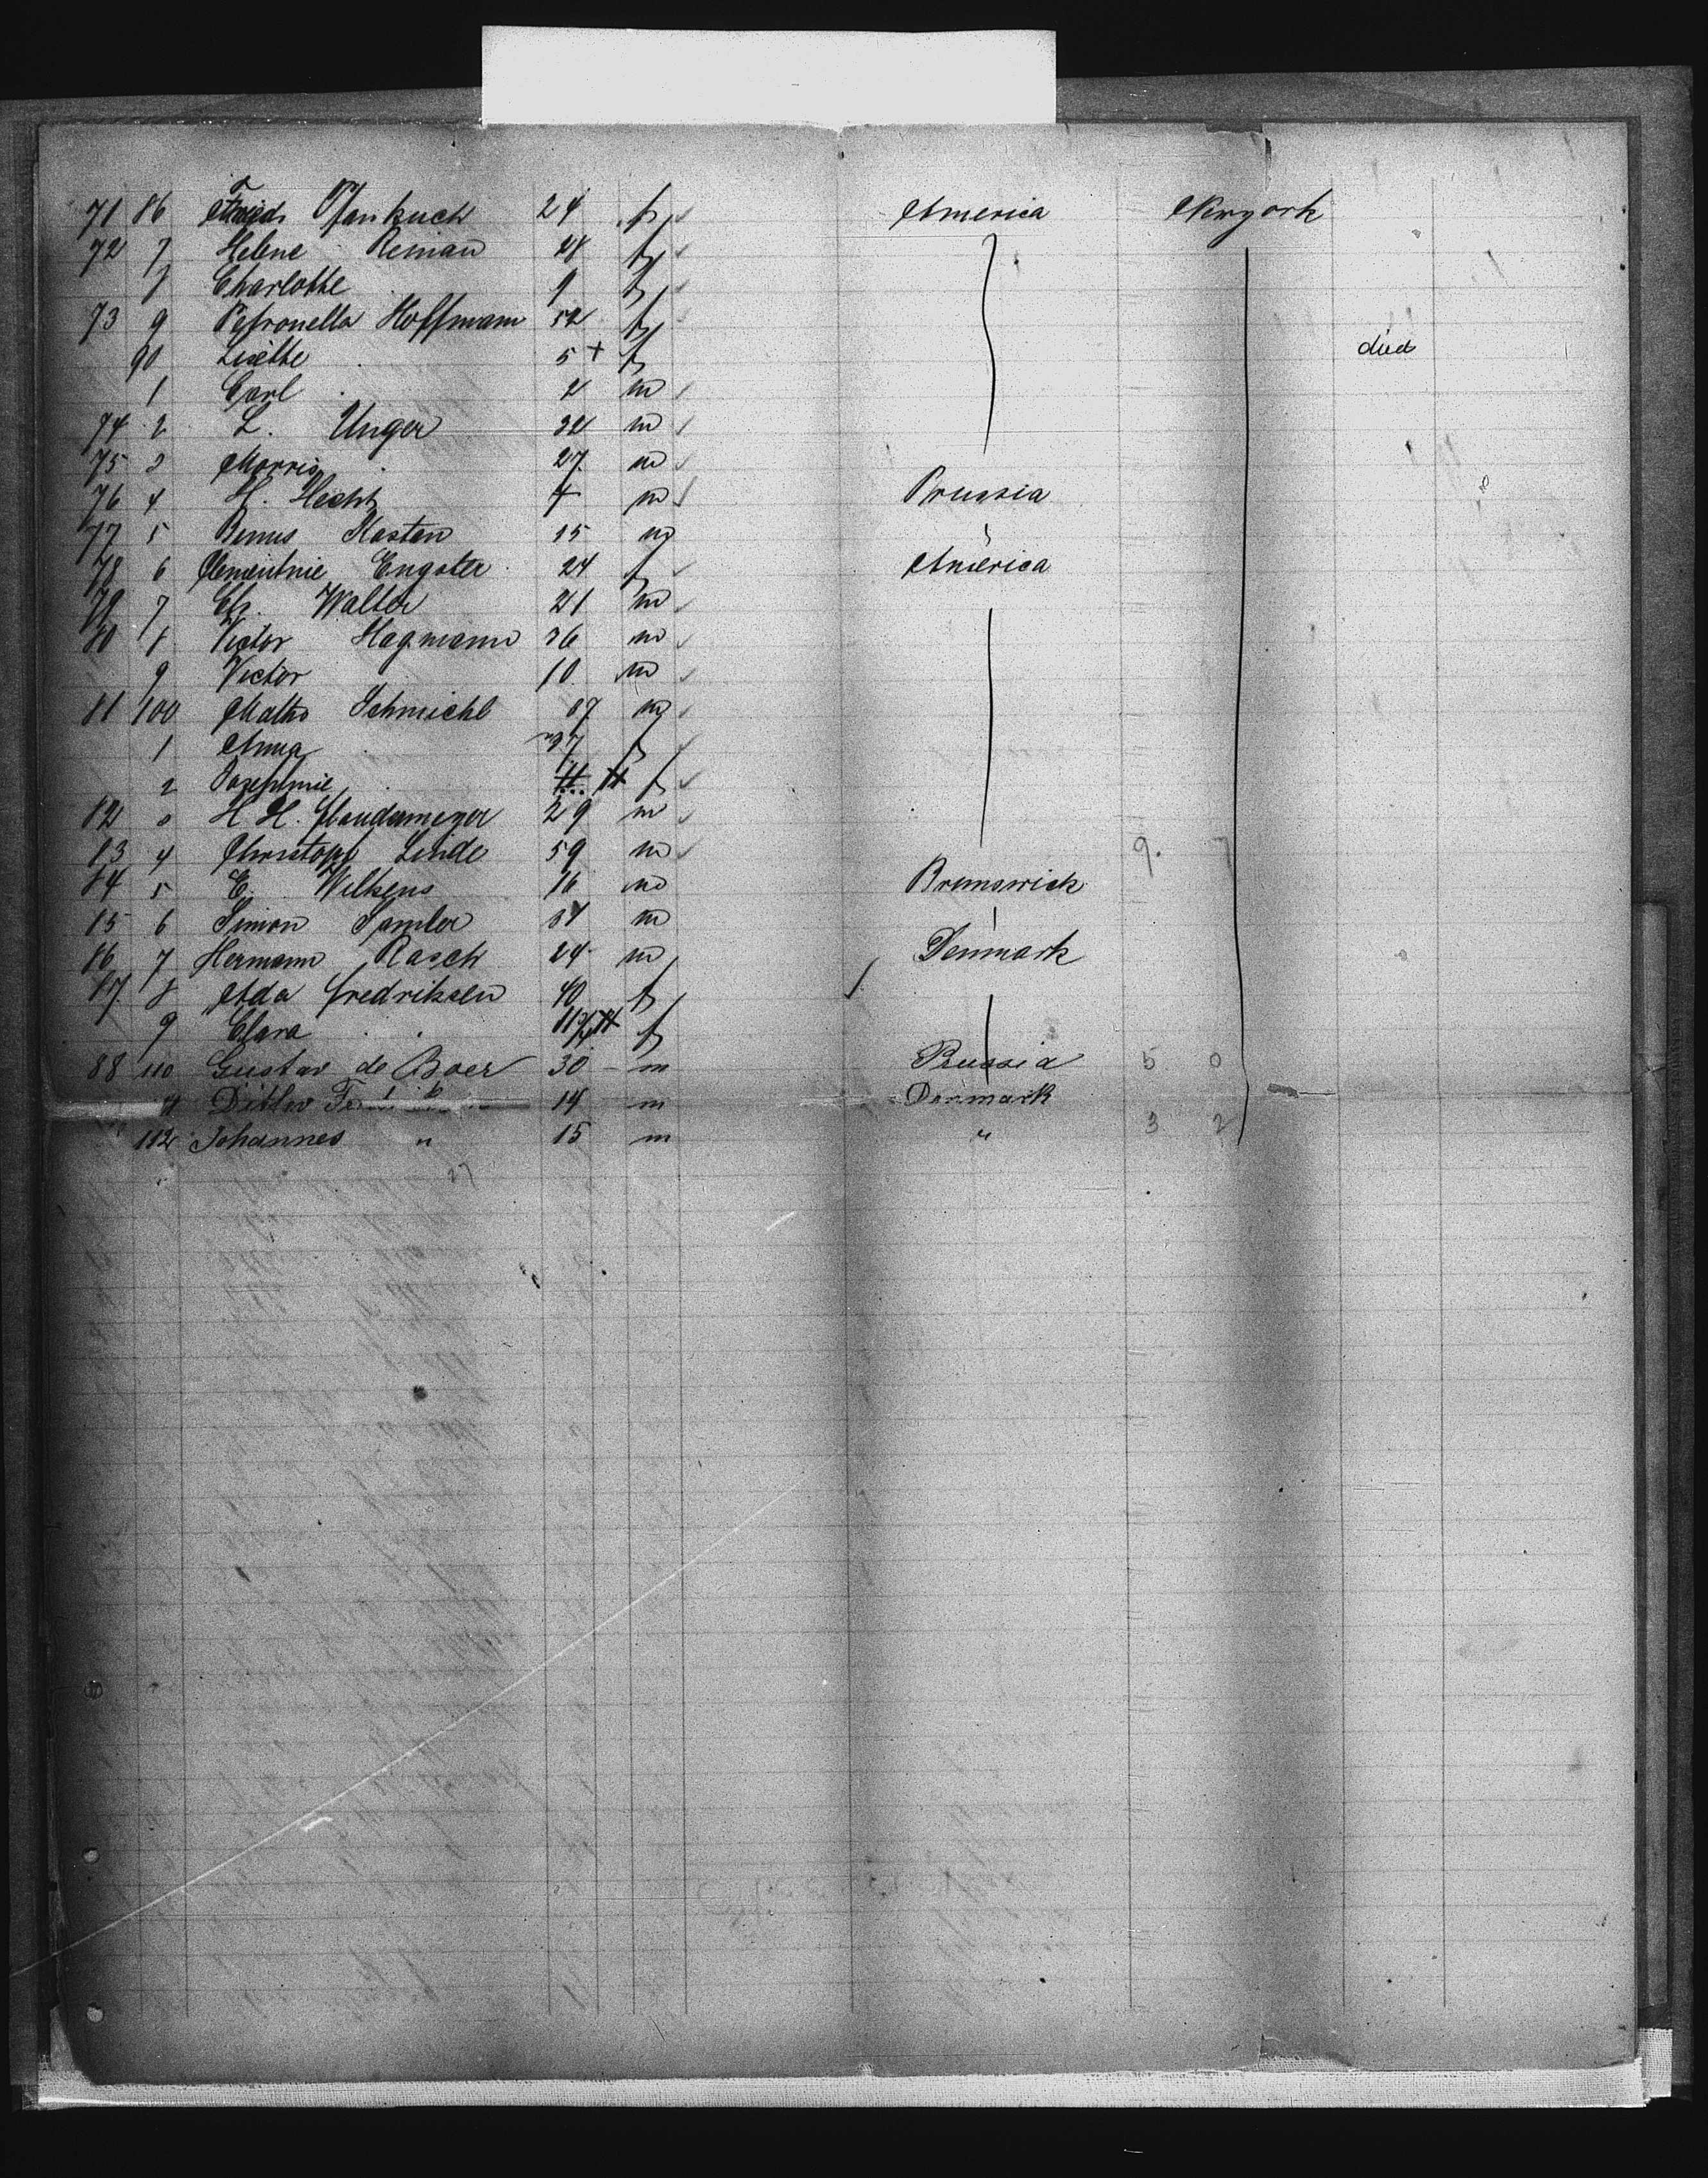 71 86 Fried. Pfankuch 24 f America Newyork
72 7 Helene Reinau 28 f
8 Charlotte 9 f
73 9 Petronella Hoffmann 52 f
90 Lisette 5 + f died
1 Carl 2 m
74 2 L. Unger 32 m
75 3 Morris 27 m
76 4 H. Hecht m Prussia
77 5 Benus Kasten 15 m
78 6 Clementine Engster 24 f America
79 7 Walter 21 m
80 8 Victor Hagmann 36 m
9 Victor 10 m
81 100 Maths Schmichl 37 m
1 Anna 37 f
2 Josephine f
82 3 H. H. 29 m
83 4 Christoph Linde 59 m 9.
84 5 E. Wilkens 16 m Brunswick
85 6 Simon Samler m
86 7 Hermann Rasch 24 m Denmark
87. 8 Ada Fredriksen 40 f
9 Clara f
88 110 Gustav de Boer 30 m Prussia 5 0
Ditlev 14 m Denmark
112 Johannes " 15 m " 3 2
27